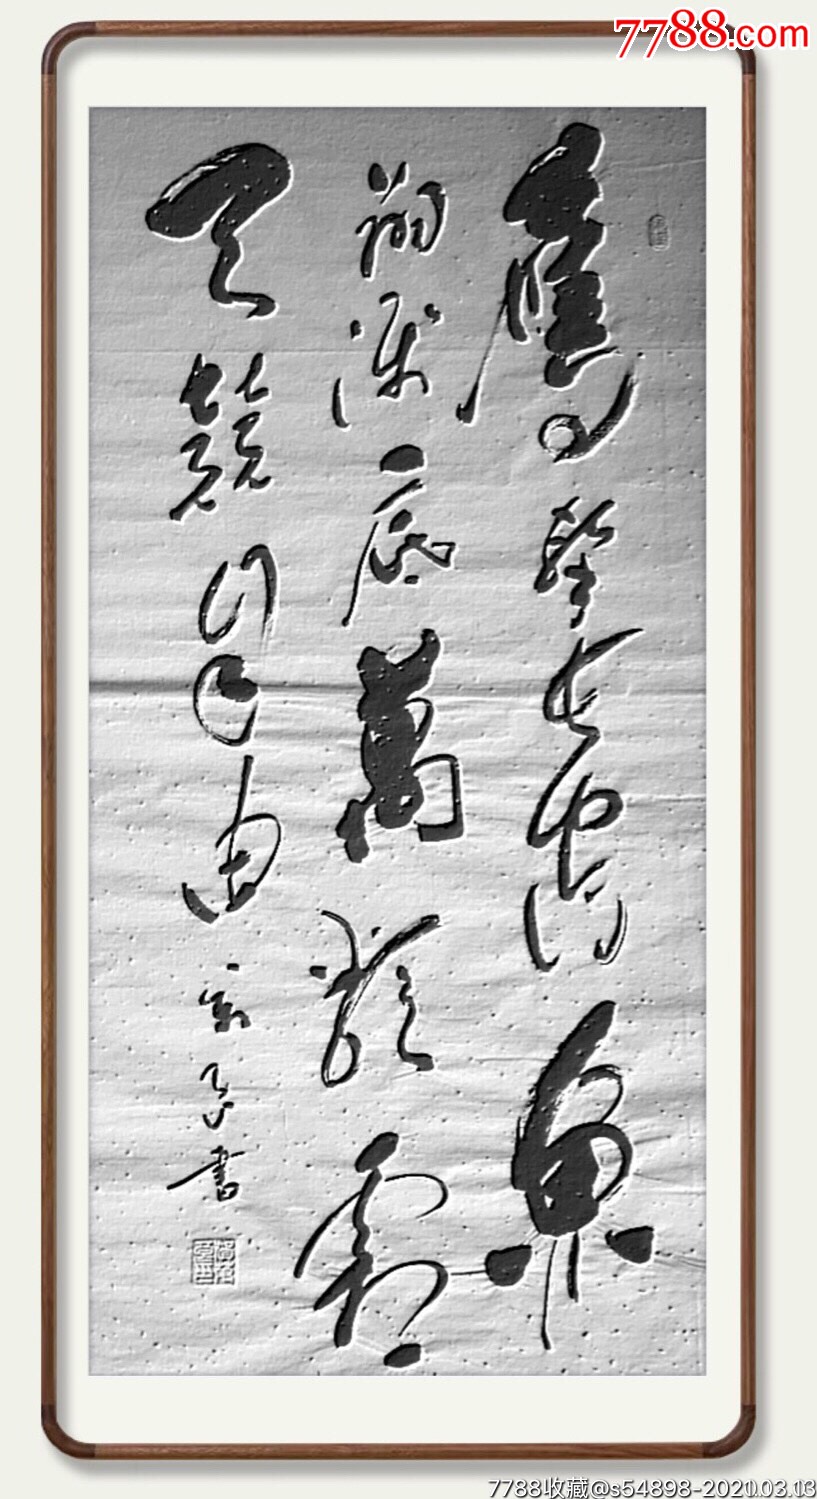 鹰击长空鱼
翔浅底万类霜
天竞自由
书
7788.com
7788收藏@s54898-2020.03.03